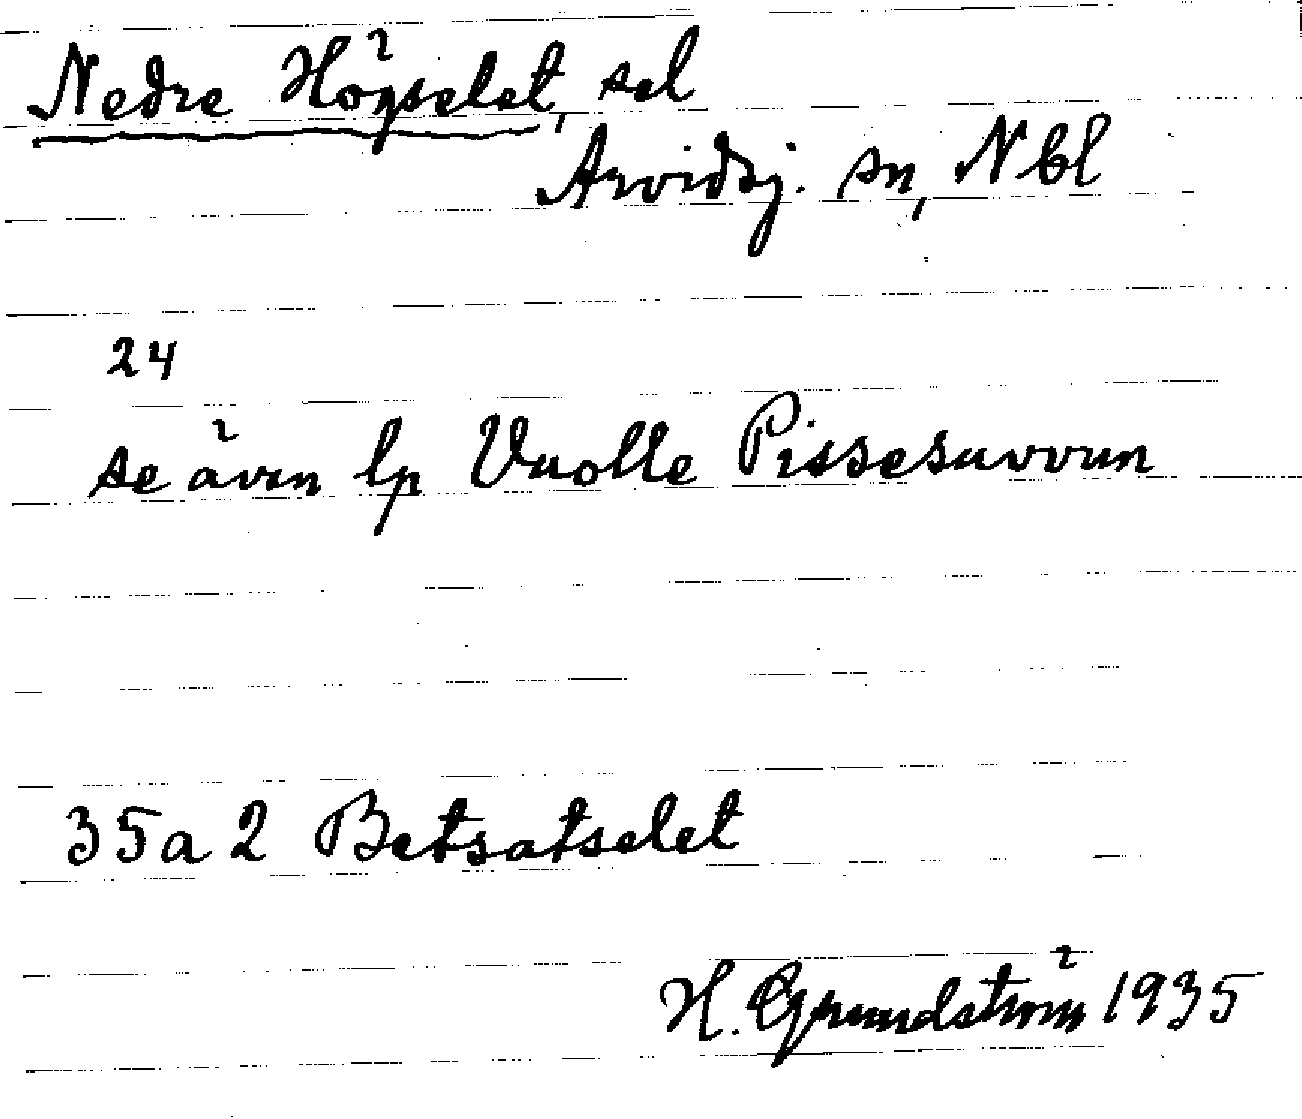 Nedre Högselet, sel
Arvidsj. sn, Nbl
24
se även lp Vuolle Pissesuvvun
35a2 Betsatselet
H. Grundström 1935